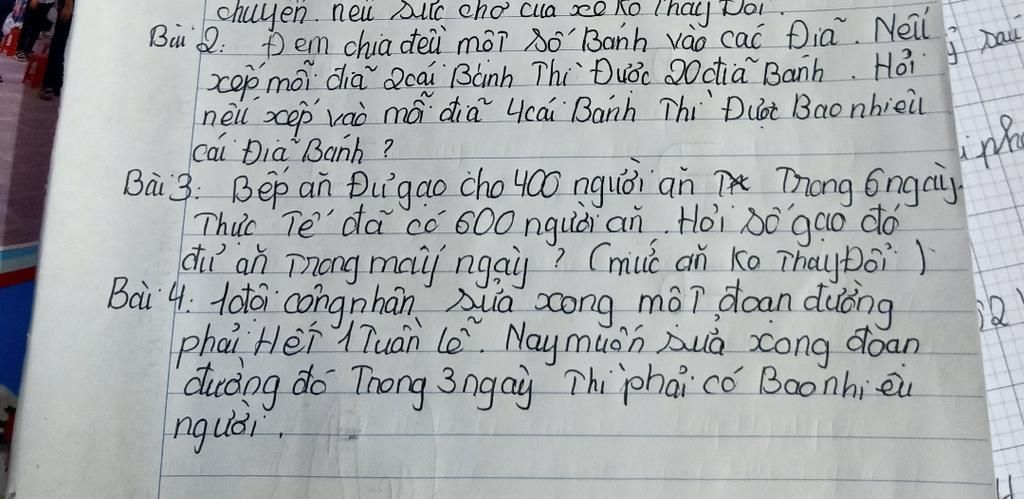 chuyến. nếu sức chở của xe ko Thay Đổi.
Bài 2: Đem chia đều một số Bánh vào các Đĩa. Nếu
xếp mỗi đĩa 2cái Bánh Thì Được 20đĩa Bánh. Hỏi
nếu xếp vào mỗi đĩa 4cái Bánh Thì Được Bao nhiêu
cái Đĩa Bánh?
Bài 3: Bếp ăn Đủ gạo cho 400 người ăn Trong 6ngày.
Thực Tế đã có 600 người ăn. Hỏi số gạo đó
đủ ăn Trong mấy ngày? (mức ăn Ko Thay Đổi)
Bài 4: 1đội công nhân sửa xong một đoạn đường
phải Hết 1 Tuần lễ. Nay muốn sửa xong đoạn
đường đó Trong 3ngày Thì phải có Bao nhiêu
người.